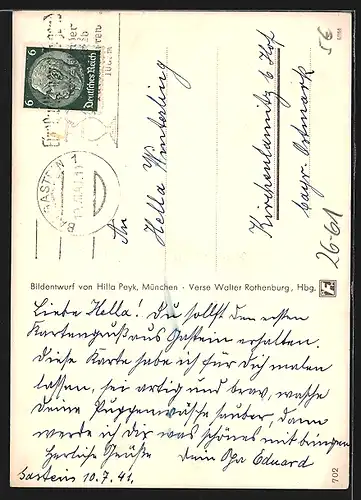 Deutsches Reich
6 6
An
Hella Winterling
Kirchenlamitz b Hof
bayr. Ostmark
5€
26-61
Bildentwurf von Hilla Peyk, München · Verse Walter Rothenburg, Hbg.
Liebe Hella! Du sollst den ersten
Kartengruß aus Gastein erhalten.
Diese Karte habe ich für Dich malen
lassen, sei artig und brav, wasche
Deine Puppenwäsche sauber, dann
werde ich dir was schönes mit bringen
Herzliche Grüße Dein Opa Eduard
Gastein 10.7.41.
702